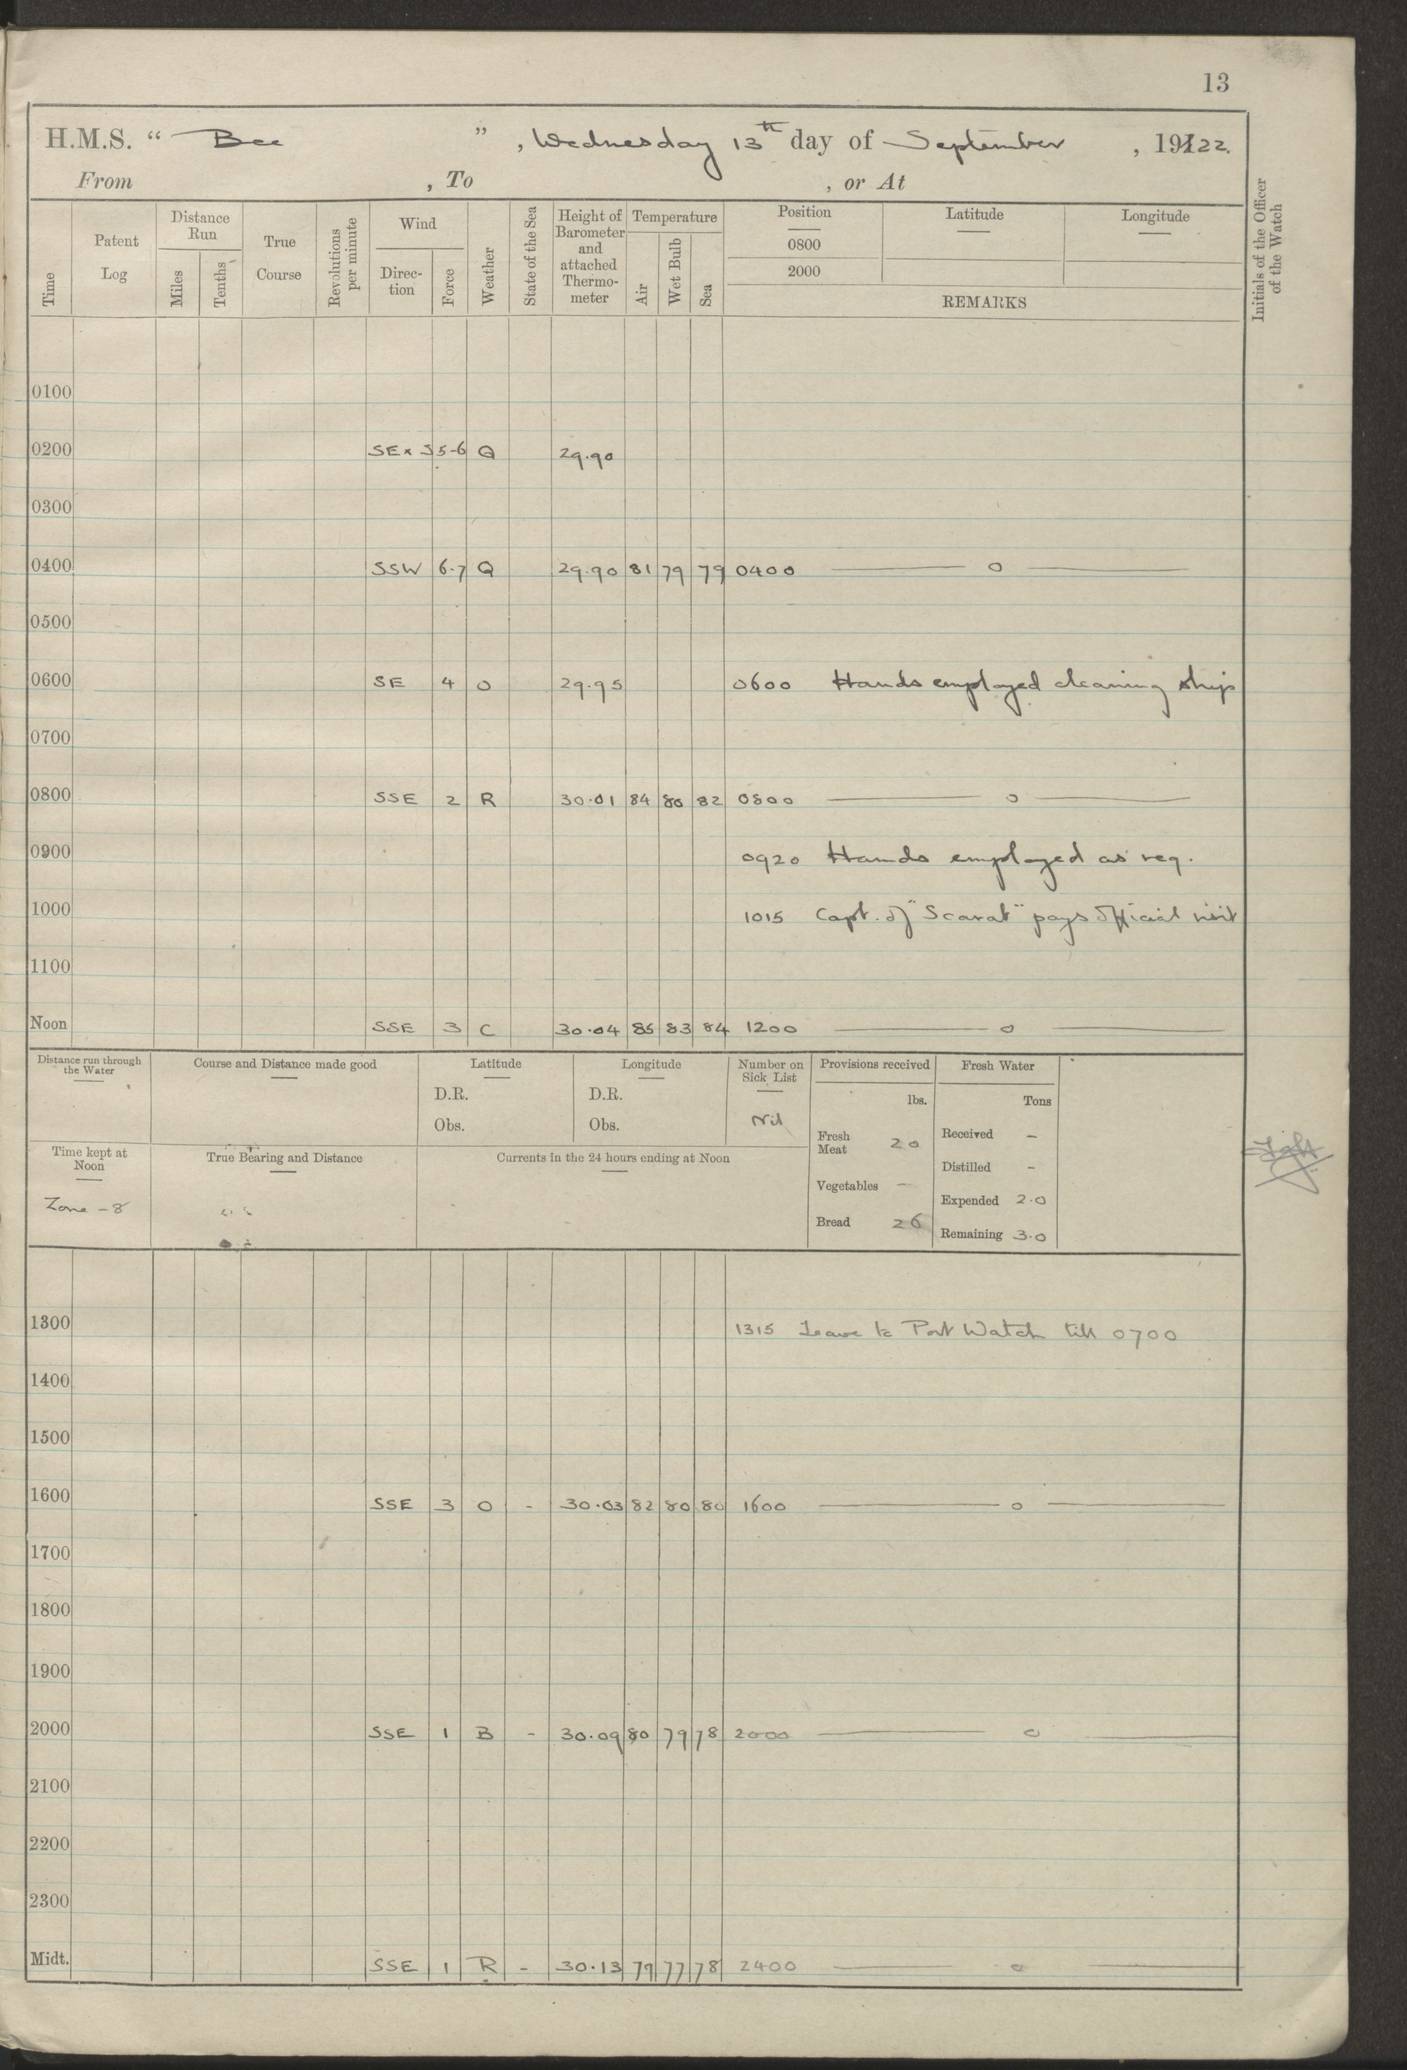 13
H.M.S. " Bee ", Wednesday 13th day of September, 1922.
From , To , or At
Time
Patent Log
Distance Run
Miles
Tenths
True Course
Revolutions per minute
Wind
Direction
Force
Weather
State of the Sea
Height of Barometer and attached Thermometer
Temperature
Air
Wet Bulb
Sea
Position
0800
2000
Latitude
Longitude
REMARKS
Initials of the Officer of the Watch
0100
0200 SE x S 5-6 Q 29.90
0300
0400 SSW 6.7 Q 29.90 81 79 79 0400 — o —
0500
0600 SE 4 O 29.95 0600 Hands employed cleaning ship
0700
0800 SSE 2 R 30.01 84 80 82 0800 — o —
0900 0920 Hands employed as req.
1000 1015 Capt. of "Scarab" pays official visit
1100
Noon SSE 3 C 30.04 85 83 84 1200 — o —
Distance run through the Water
Course and Distance made good
Latitude
D.R.
Obs.
Longitude
D.R.
Obs.
Number on Sick List
Nil
Provisions received
lbs.
Fresh Meat 20
Vegetables -
Bread 26
Fresh Water
Tons
Received -
Distilled -
Expended 2.0
Remaining 3.0
Time kept at Noon
Zone -8
True Bearing and Distance
Currents in the 24 hours ending at Noon
1300 1315 Leave to Port Watch till 0700
1400
1500
1600 SSE 3 O - 30.03 82 80 80 1600 — o —
1700
1800
1900
2000 SSE 1 B - 30.09 80 79 78 2000 — o —
2100
2200
2300
Midt. SSE 1 R - 30.13 79 77 78 2400 — o —